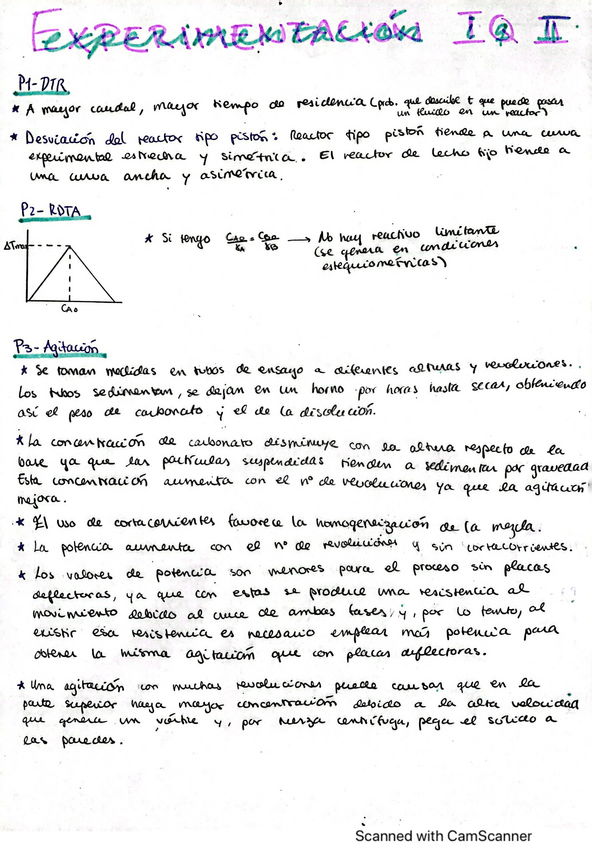 EXPERIMENTACIÓN IQ II
P1-DTR
* A mayor caudal, mayor tiempo de residencia (prob. que describe t que puede pasar
un fluido en un reactor)
* Desviación del reactor tipo pistón: Reactor tipo pistón tiende a una curva
experimental estrecha y simétrica. El reactor de lecho fijo tiende a
una curva ancha y asimétrica.
P2- RDTA
ΔTmax
CAo
* Si tengo CAo/γA = CBo/γB → No hay reactivo limitante
(se genera en condiciones
estequiométricas)
P3-Agitación
* Se toman medidas en tubos de ensayo a diferentes alturas y revoluciones.
Los tubos sedimentan, se dejan en un horno por horas hasta secar, obteniendo
así el peso de carbonato y el de la disolución.
* La concentración de carbonato disminuye con la altura respecto de la
base ya que las partículas suspendidas tienden a sedimentar por gravedad
Esta concentración aumenta con el nº de revoluciones ya que la agitación
mejora.
* El uso de cortacorrientes favorece la homogeneización de la mezcla.
* La potencia aumenta con el nº de revoluciones y sin cortacorrientes.
* Los valores de potencia son menores para el proceso sin placas
deflectoras, ya que con estas se produce una resistencia al
movimiento debido al cruce de ambas fases, y, por lo tanto, al
existir esa resistencia es necesario emplear más potencia para
obtener la misma agitación que con placas deflectoras.
* Una agitación con muchas revoluciones puede causar que en la
parte superior haya mayor concentración debido a la alta velocidad
que genera un vórtice y, por fuerza centrífuga, pega el sólido a
las paredes.
Scanned with CamScanner